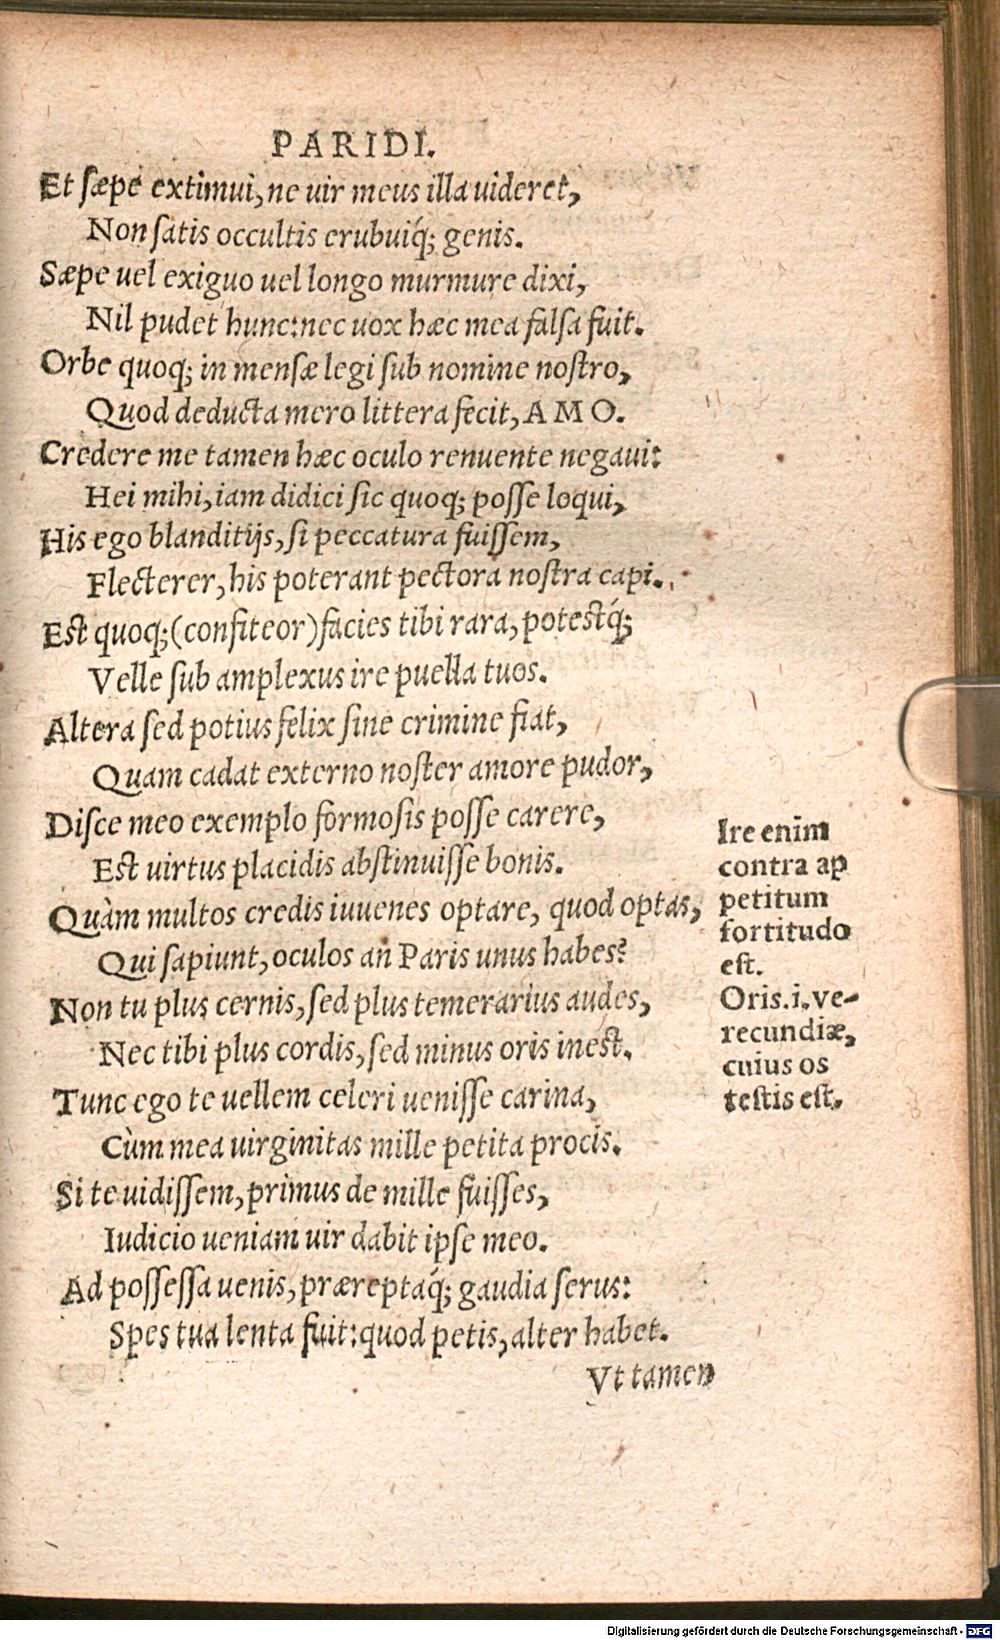 PARIDI.
Et sæpe extimui, ne uir meus illa uideret,
Non satis occultis erubuiq́; genis.
Sæpe uel exiguo uel longo murmure dixi,
Nil pudet hunc: nec uox hæc mea falsa fuit.
Orbe quoq; in mensæ legi sub nomine nostro,
Quod deducta mero littera fecit, AMO.
Credere me tamen hæc oculo renuente negaui:
Hei mihi, iam didici sic quoq; posse loqui,
His ego blanditijs, si peccatura fuissem,
Flecterer, his poterant pectora nostra capi.
Est quoq; (confiteor) facies tibi rara, potestq́;
Velle sub amplexus ire puella tuos.
Altera sed potius felix sine crimine fiat,
Quam cadat externo noster amore pudor,
Disce meo exemplo formosis posse carere,
Est virtus placidis abstinuisse bonis.
Quàm multos credis iuuenes optare, quod optas,
Qui sapiunt, oculos an Paris unus habes?
Non tu plus cernis, sed plus temerarius audes,
Nec tibi plus cordis, sed minus oris inest.
Tunc ego te uellem celeri uenisse carina,
Cùm mea uirginitas mille petita procis.
Si te uidissem, primus de mille fuisses,
Iudicio ueniam uir dabit ipse meo.
Ad possessa uenis, præreptaq́; gaudia serus:
Spes tua lenta fuit: quod petis, alter habet.
Vt tamen
Ire enim
contra ap
petitum
fortitudo
est.
Oris. i. ve-
recundiæ,
cuius os
testis est.
Digitalisierung gefördert durch die Deutsche Forschungsgemeinschaft - DFG